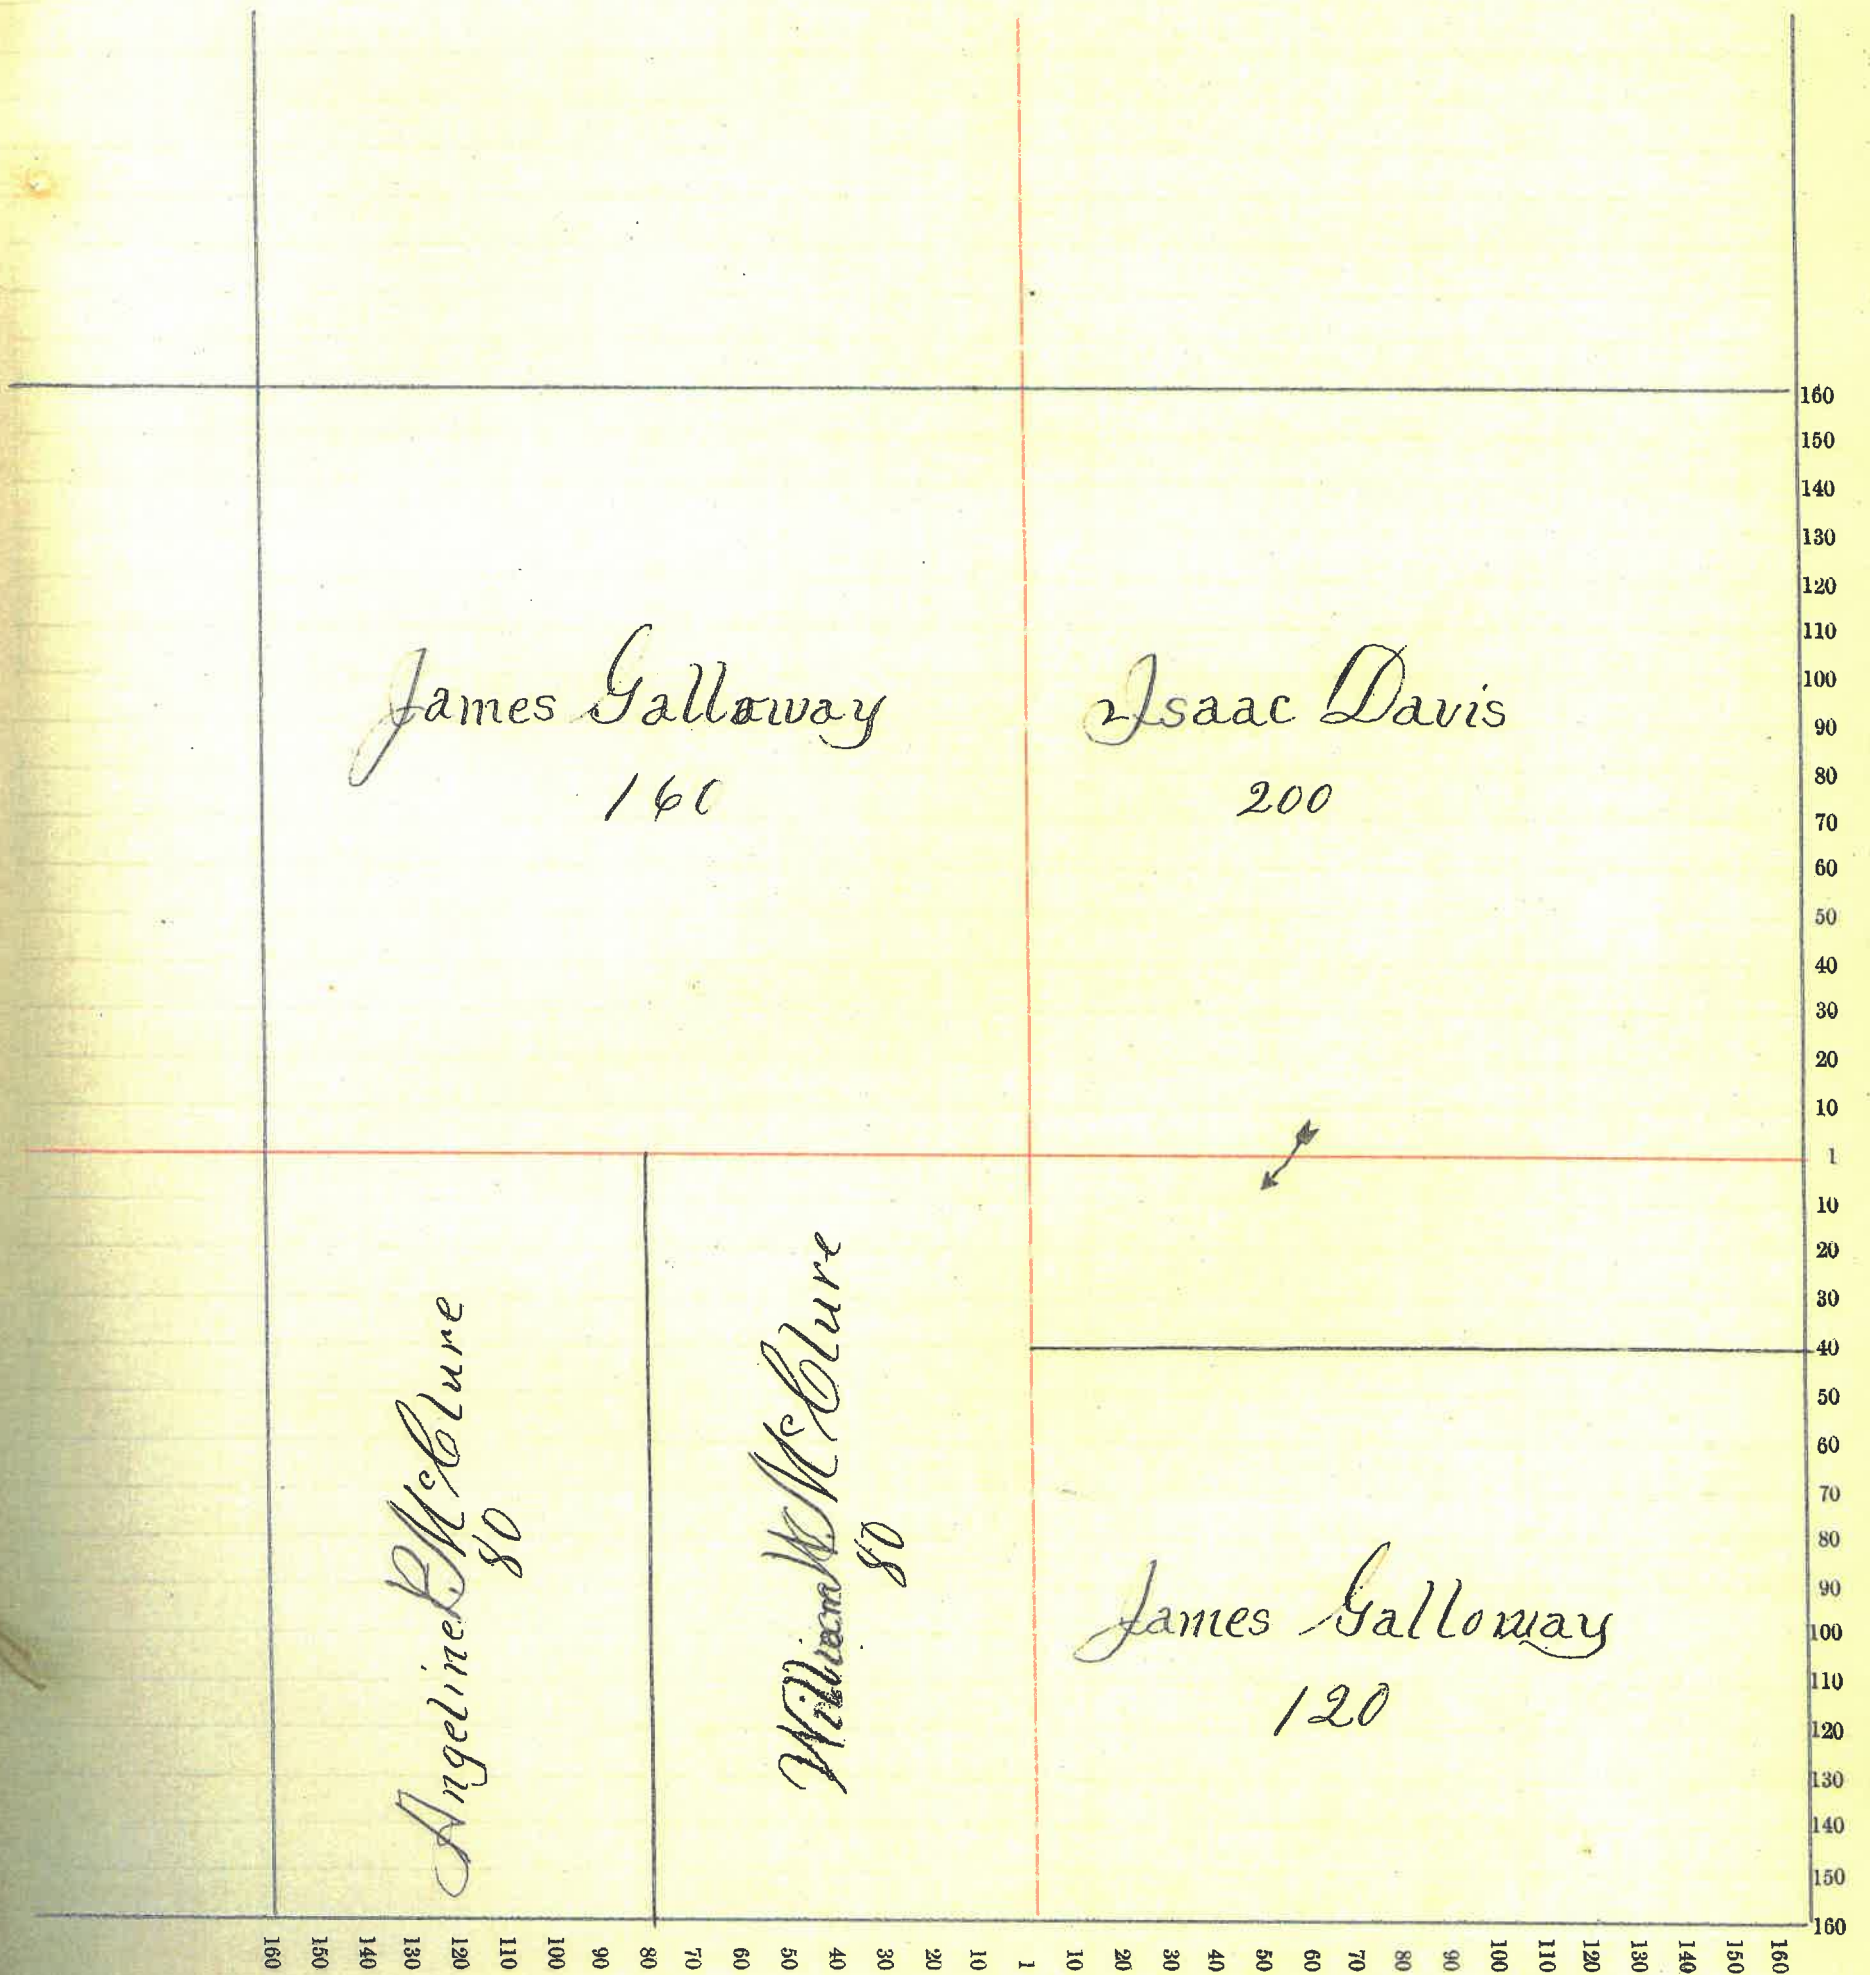 James Galloway
160
Isaac Davis
200
Angeline B McClure
80
William W McClure
80
James Galloway
120
160
150
140
130
120
110
100
90
80
70
60
50
40
30
20
10
1
10
20
30
40
50
60
70
80
90
100
110
120
130
140
150
160
160 150 140 130 120 110 100 90 80 70 60 50 40 30 20 10 1 10 20 30 40 50 60 70 80 90 100 110 120 130 140 150 160